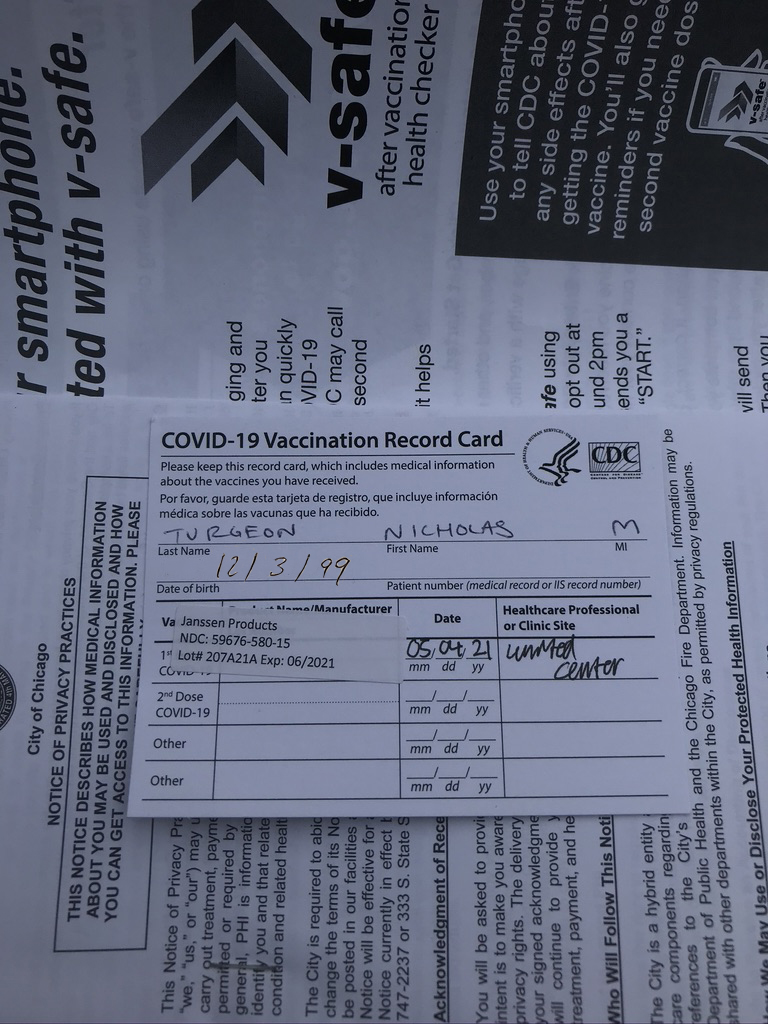 r smartphone.
ted with v-safe.
v-safe
after vaccination
health checker
Use your smartpho
to tell CDC abou
any side effects aft
getting the COVID-
vaccine. You'll also g
reminders if you need
second vaccine dos
v-safe
ging and
ter you
n quickly
VID-19
C may call
second
it helps
afe using
opt out at
und 2pm
ends you a
"START."
will send
Then you
COVID-19 Vaccination Record Card
Please keep this record card, which includes medical information
about the vaccines you have received.
Por favor, guarde esta tarjeta de registro, que incluye información
médica sobre las vacunas que ha recibido.
CDC
TURGEON NICHOLAS M
Last Name First Name MI
12/3/99
Date of birth Patient number (medical record or IIS record number)
Va Product Name/Manufacturer Date Healthcare Professional
or Clinic Site
Janssen Products
NDC: 59676-580-15
Lot# 207A21A Exp: 06/2021
1st
COVID-19
05 04 21 United
center
mm dd yy
2nd Dose
COVID-19
mm dd yy
Other
mm dd yy
Other
mm dd yy
City of Chicago
NOTICE OF PRIVACY PRACTICES
THIS NOTICE DESCRIBES HOW MEDICAL INFORMATION
ABOUT YOU MAY BE USED AND DISCLOSED AND HOW
YOU CAN GET ACCESS TO THIS INFORMATION. PLEASE
This Notice of Privacy Pra
"we," "us," or "our") may u
carry out treatment, payme
permitted or required by
general, PHI is informatio
identify you and that relate
condition and related healt
The City is required to abid
change the terms of its No
be posted in our facilities a
Notice will be effective for a
Notice currently in effect b
747-2237 or 333 S. State S
Acknowledgment of Rece
You will be asked to provi
intent is to make you aware
privacy rights. The delivery
your signed acknowledgme
will continue to provide y
treatment, payment, and he
Who Will Follow This Noti
The City is a hybrid entity
care components regardin
references to the City's
Department of Public Health and the Chicago Fire Department. Information may be
shared with other departments within the City, as permitted by privacy regulations.
How We May Use or Disclose Your Protected Health Information